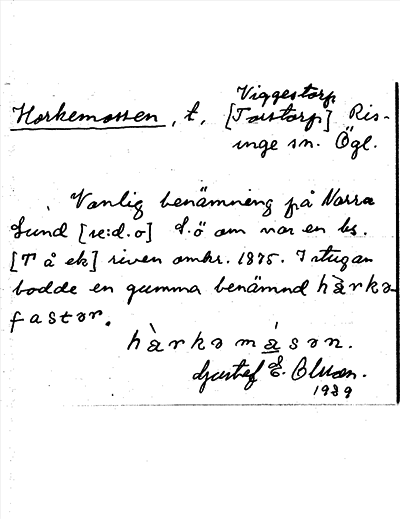 Viggestorp
Harkemossen, t, [Torstorp] Ris-
inge sn. Ögl.
Vanlig benämning på Norra
Lund [se:d.o] S.ö om var en bs.
[T å ek] riven omkr. 1875. I stugan
bodde en gumma benämnd hàrkə
fastər.
hàrkəmåsən.
Gustaf E. Olsson.
1939